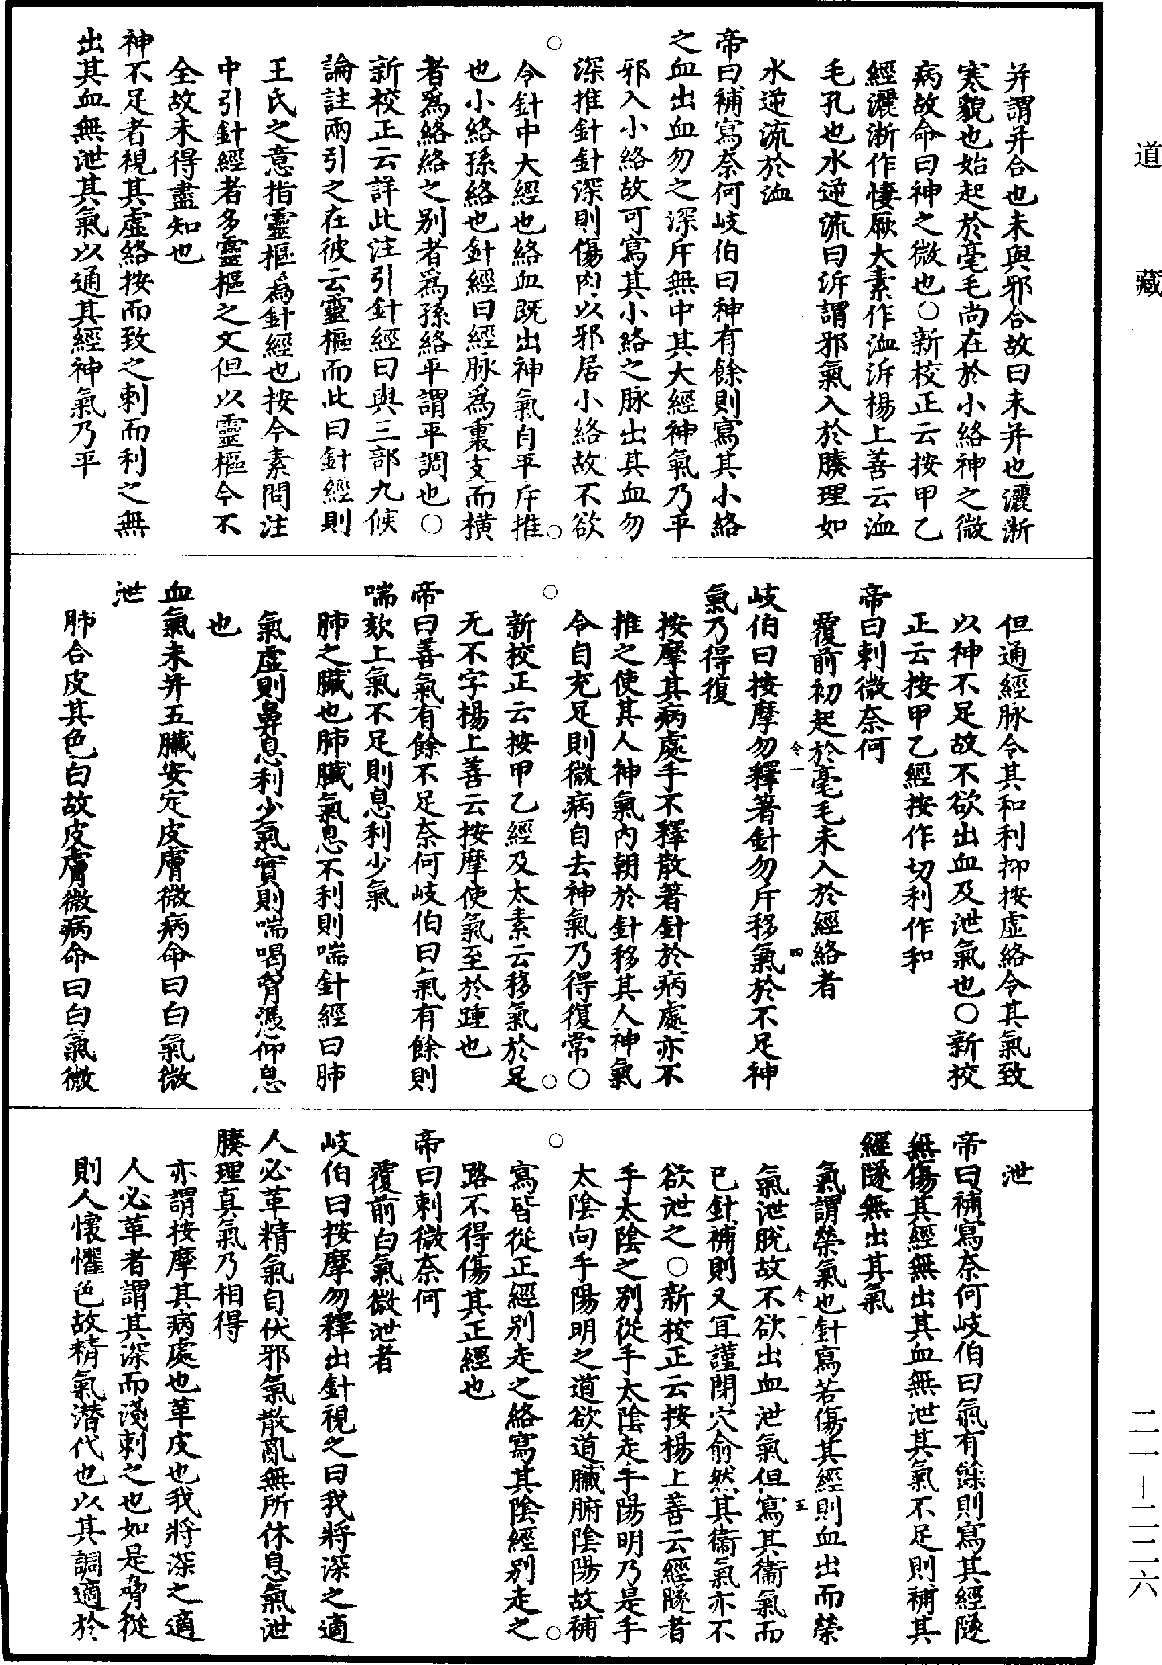 道藏
并謂并合也未與邪合故曰未并也灑淅
寒貌也始起於毫毛尚在於小絡神之微
病故命曰神之微也○新校正云按甲乙
經灑淅作悽厥太素作洫泝楊上善云洫
毛孔也水逆流曰泝謂邪氣入於腠理如
水逆流於洫
帝曰補寫奈何岐伯曰神有餘則寫其小絡
之血出血勿之深斥無中其大經神氣乃平
邪入小絡故可寫其小絡之脉出其血勿
深推針針深則傷肉以邪居小絡故不欲
令針中大經也絡血既出神氣自平斥推
也小絡孫絡也針經曰經脉爲裏支而橫
者爲絡絡之别者爲孫絡平謂平調也○
新校正云詳此注引針經曰與三部九候
論註兩引之在彼云靈樞而此曰針經則
王氏之意指靈樞爲針經也按今素問注
中引針經者多靈樞之文但以靈樞今不
全故未得盡知也
神不足者視其虛絡按而致之刺而利之無
出其血無泄其氣以通其經神氣乃平
但通經脉令其和利抑按虛絡令其氣致
以神不足故不欲出血及泄氣也○新校
正云按甲乙經按作切利作和
帝曰刺微奈何
覆前初起於毫毛未入於經絡者
岐伯曰按摩勿釋著針勿斥移氣於不足神
氣乃得復
按摩其病處手不釋散著針於病處亦不
推之使其人神氣内朝於針移其人神氣
令自充足則微病自去神氣乃得復常○
新校正云按甲乙經及太素云移氣於足
无不字楊上善云按摩使氣至於踵也
帝曰善氣有餘不足奈何岐伯曰氣有餘則
喘欬上氣不足則息利少氣
肺之臟也肺臟氣息不利則喘針經曰肺
氣虛則鼻息利少氣實則喘喝胷憑仰息
也
血氣未并五臟安定皮膚微病命曰白氣微
泄
肺合皮其色白故皮膚微病命曰白氣微
泄
帝曰補寫奈何岐伯曰氣有餘則寫其經隧
無傷其經無出其血無泄其氣不足則補其
經隧無出其氣
氣謂榮氣也針寫若傷其經則血出而榮
氣泄脫故不欲出血泄氣但寫其衞氣而
已針補則又宜謹閉穴俞然其衞氣亦不
欲泄之○新校正云按楊上善云經隧者
手太陰之别從手太陰走手陽明乃是手
太陰向手陽明之道欲道臟腑陰陽故補
寫皆從正經别走之絡寫其陰經别走之
路不得傷其正經也
帝曰刺微奈何
覆前白氣微泄者
岐伯曰按摩勿釋出針視之曰我將深之適
人必革精氣自伏邪氣散亂無所休息氣泄
腠理真氣乃相得
亦謂按摩其病處也革皮也我將深之適
人必革者謂其深而淺刺之也如是脅從
則人懷懼色故精氣潛代也以其調適於
二一—二二六